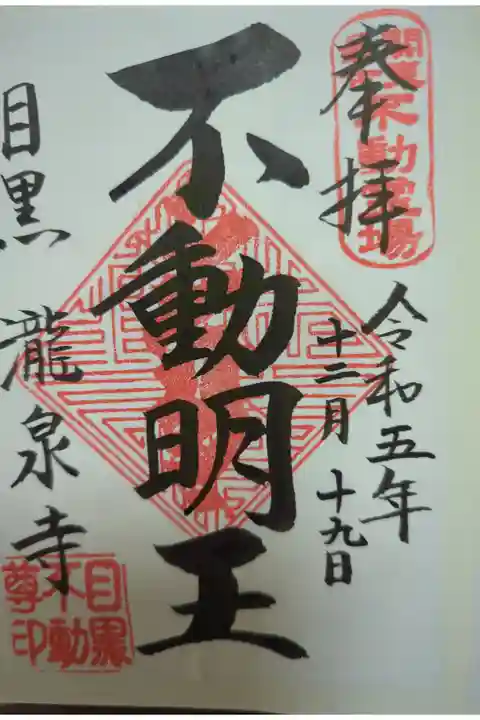 奉拝
関東不動霊場
令和五年
十二月十九日
不動明王
目黒瀧泉寺
目黒
不動
尊印